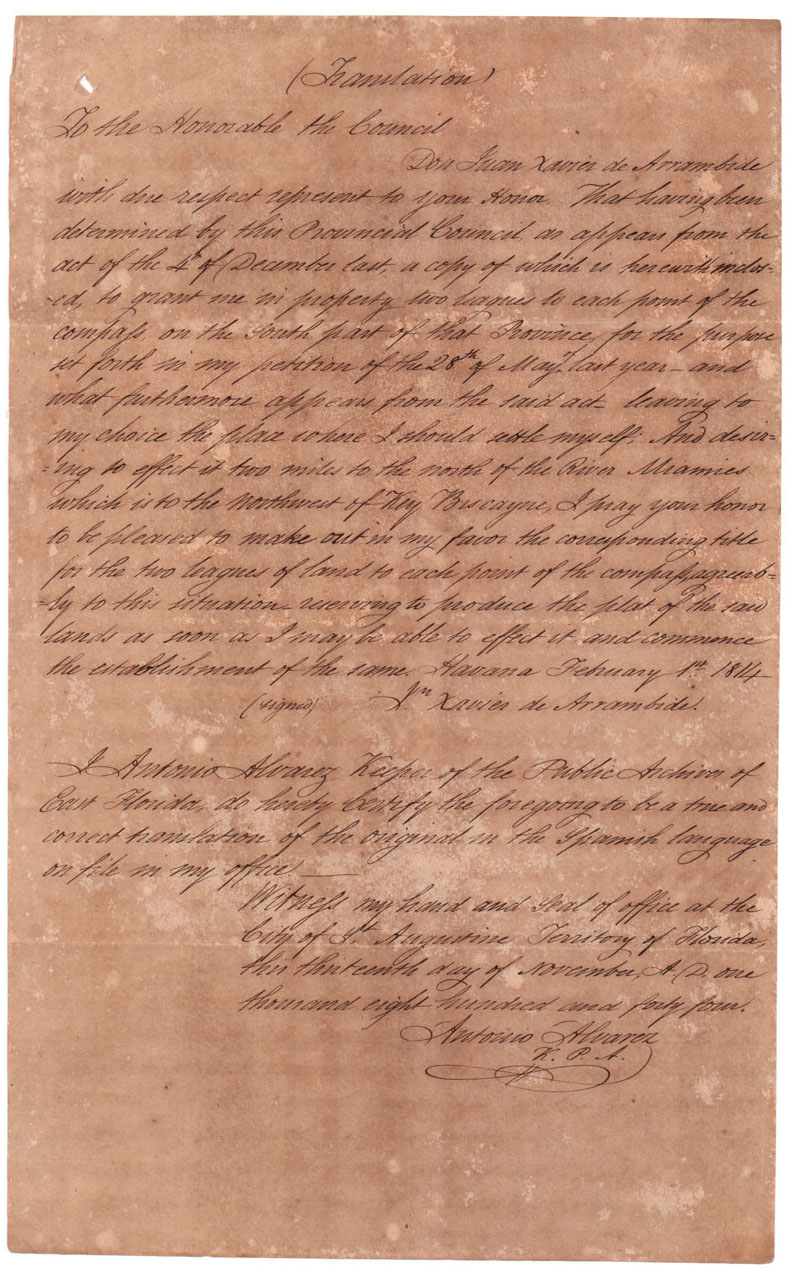 (Translation)
To the Honorable the Council
Don Juan Xavier de Arrambide
with due respect represent to your Honor. That having been
determined by this Provincial Council, as appears from the
act of the 4th of December last, a copy of which is herewith inclos-
-ed, to grant me in property two leagues to each point of the
compass, on the South part of that Province, for the purpose
set forth in my petition of the 28th of May, last year - and
what furthermore appears from the said act - leaving to
my choice the place where I should settle myself; And desir-
-ing to effect it two miles to the north of the River Miamies
which is to the Northwest of Key Biscayne, I pray your honor
to be pleased to make out in my favor the corresponding title
for the two leagues of land to each point of the compass, agreeab-
-ly to this situation reserving to produce the plat of the said
lands as soon as I may be able to effect it and commence
the establishment of the same. Havana February 1st 1814 -
(signed) Jn Xavier de Arrambide.
I Antonio Alvarez Keeper of the Public Archives of
East Florida, do hereby Certify the foregoing to be a true and
correct translation of the original in the Spanish language
on file in my office —
Witness my hand and Seal of office at the
City of St Augustine Territory of Florida,
this thirteenth day of November, A. D. one
thousand eight hundred and forty four.
Antonio Alvarez
K. P. A.